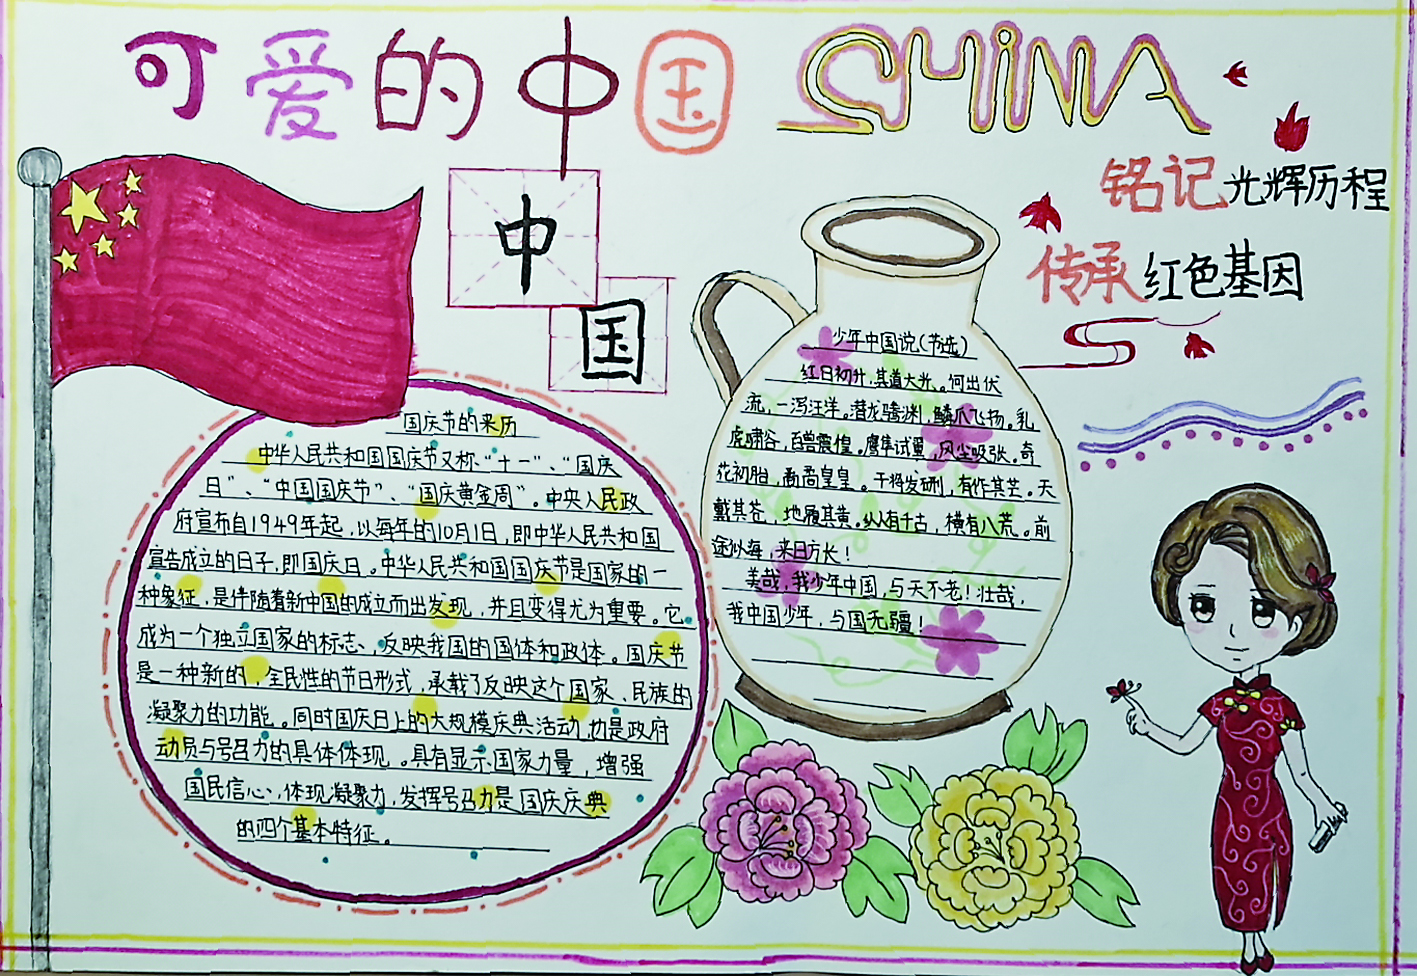 可爱的中国 CHINA
铭记光辉历程
传承红色基因
中
国
国庆节的来历
中华人民共和国国庆节又称“十一”、“国庆
日”、“中国国庆节”、“国庆黄金周”。中央人民政
府宣布自1949年起，以每年的10月1日，即中华人民共和国
宣告成立的日子，即国庆日。中华人民共和国国庆节是国家的一
种象征，是伴随着新中国的成立而出发现，并且变得尤为重要。它
成为一个独立国家的标志，反映我国的国体和政体。国庆节
是一种新的，全民性的节日形式，承载了反映这个国家、民族的
凝聚力的功能。同时国庆日上的大规模庆典活动，也是政府
动员与号召力的具体体现。具有显示国家力量，增强
国民信心，体现凝聚力，发挥号召力是国庆庆典
的四个基本特征。
少年中国说（节选）
红日初升，其道大光。河出伏
流，一泻汪洋。潜龙腾渊，鳞爪飞扬。乳
虎啸谷，百兽震惶。鹰隼试翼，风尘吸张。奇
花初胎，矞矞皇皇。干将发硎，有作其芒。天
戴其苍，地履其黄。纵有千古，横有八荒。前
途似海，来日方长！
美哉，我少年中国，与天不老！壮哉，
我中国少年，与国无疆！